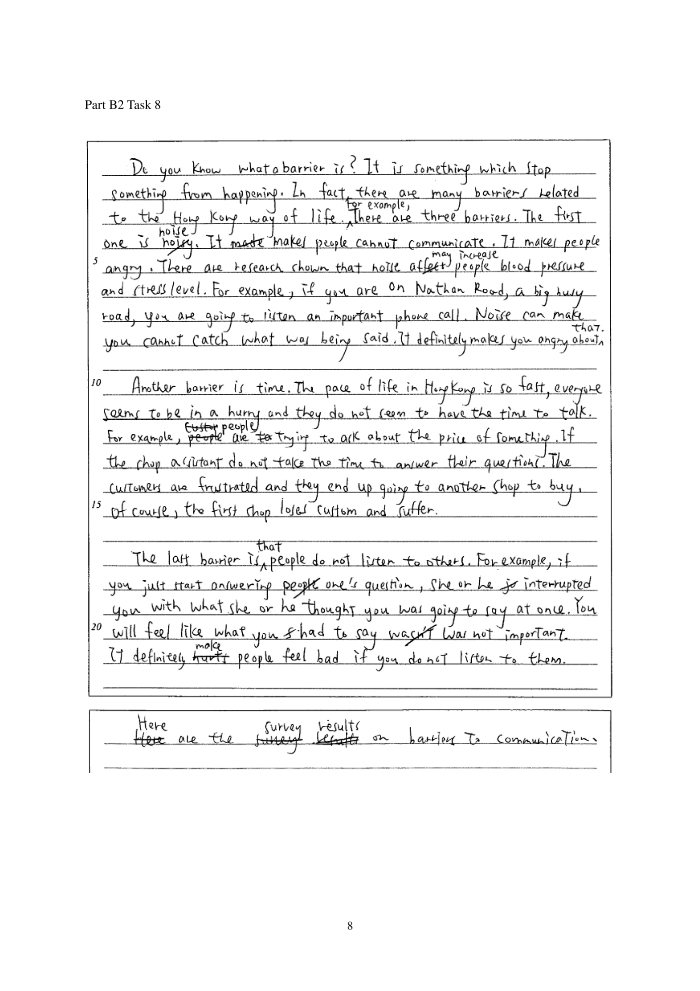 Part B2 Task 8
Do you know what a barrier is? It is something which stop
something from happening. In fact, there are many barriers related
to the Hong Kong way of life. For example, There are three barriers. The first
one is noise. It makes people cannot communicate. It makes people
5 angry. There are research shown that noise may increase people blood pressure
and stress level. For example, if you are on Nathan Road, a big busy
road, you are going to listen an important phone call. Noise can make
you cannot catch what was being said. It definitely makes you angry about that.
10 Another barrier is time. The pace of life in Hong Kong is so fast, everyone
seems to be in a hurry and they do not seem to have the time to talk.
For example, people are trying to ask about the price of something. If
the shop assistant do not take the time to answer their questions. The
customers are frustrated and they end up going to another shop to buy.
15 Of course, the first shop loses custom and suffer.
The last barrier is that people do not listen to others. For example, if
you just start answering one's question, she or he interrupted
you with what she or he thought you was going to say at once. You
20 will feel like what you had to say was not important.
It definitely make people feel bad if you do not listen to them.
Here are the survey results on barriers to communication.
8